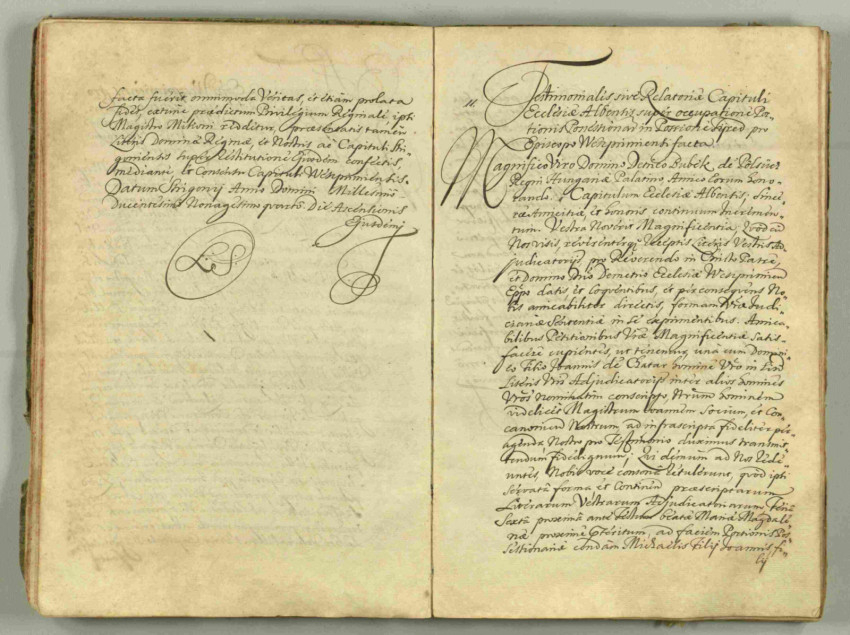 facta fuerit omnimoda Veritas, et etiam prolata
fides, eatune prædictum Privilegium Regimale ipsi
Magistro Mikoni redditur, præsentatis tamen
Litteris Dominæ Reginæ, et Nostris ac Capituli Stri-
goniensis super restitutione Ejusdem confectis,
mediante et Consensu Capituli Wesprimiensis.
Datum Strigonij Anno Domini Millesimo
ducentesimo Nonagesimo quarto. Die Ascensionis
Ejusdem
LS
11. Testimonialis sive Relatoriæ Capituli
Ecclesiæ Albensis super occupatione Por-
tionis Possessionar in pro
Episcopo Wesprimiensi facta
Magnifico Viro Domino Detrico Bubek de Pelsücz
Regni Hungariæ Palatino Amico eorum hono-
rando. Capitulum Ecclesiæ Albensis, Since-
ræ Amicitiæ, et honoris continuum Incremen-
tum. Vestra Noverit Magnificentia, Quod cum
Nos visis, reverenterque receptis Literis Vestris Ad-
judicatorijs, pro Reverendo in Christo Patre,
et Domino Dno Demetrio Ecclesiæ Wesprimien
Eppo datis et loquentibus, et per consequens No-
bis amicabiliter directis, formam Vræ Judi-
ciariæ Sententiæ in se exprimentibus. Amica-
bilibus Petitionibus Vræ Magnificentiæ Satis-
facere cupientes, ut tenemur, una cum Domini-
co filio Joannis de Chatar homine Vro in
Literis Vris Adjudicatorijs inter alios homines
Vros Nominatim conscripto, Nrum hominem
videlicet Magistrum Joannem Socium, et Con-
canonicum Nostrum, ad infrascripta fideliter per-
agenda Nostro pro Testimonio duximus transmit-
tendum fidedignum; Qui demum ad Nos rede-
untes, Nobis voce consona retulerunt, quod ipsi
servata forma et Continen præscriptarum
Literarum Vestrarum Adjudicatoriarum, feria
Sexta proxima ante festum beatæ Mariæ Magdale-
næ proxime præteritum, ad faciem Portionis Pos-
sessionariæ condam Michaelis filij Joannis fi-
lij